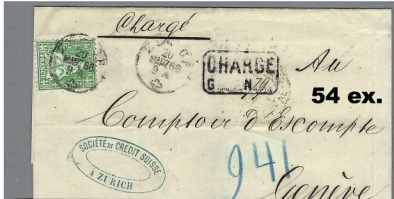 Chargé
CHARGÉ
Au
54 ex.
Comptoir d'Escompte
SOCIÉTÉ DE CRÉDIT SUISSE
A ZURICH
941
Genève